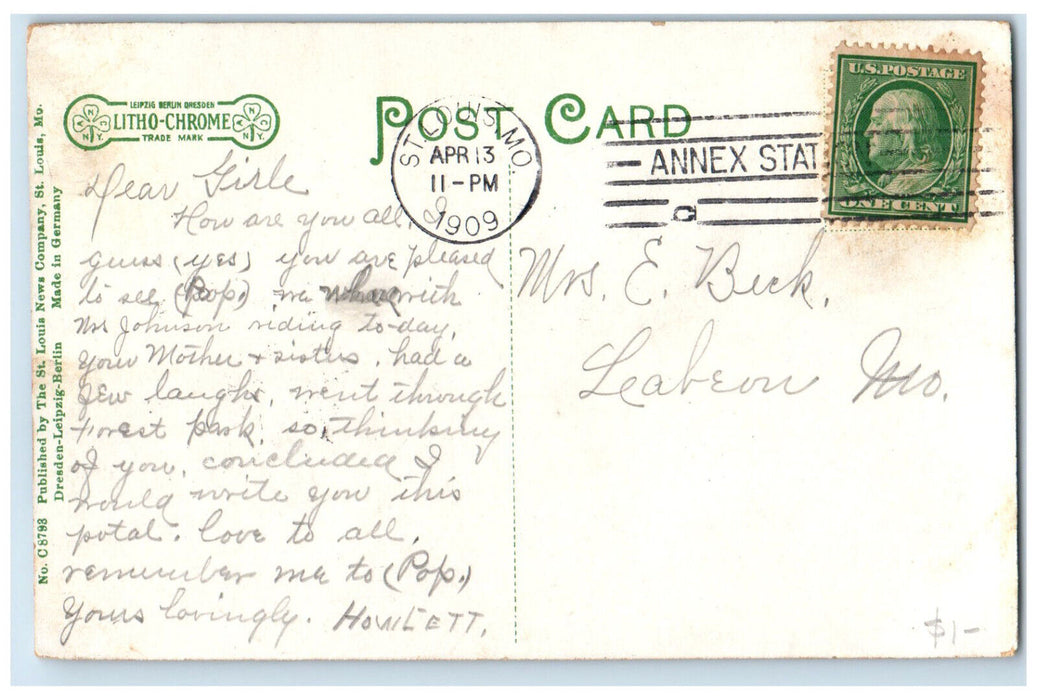 POST CARD
LEIPZIG BERLIN DRESDEN
LITHO-CHROME
TRADE MARK
ANC
N.Y.
ANC
N.Y.
ST. LOUIS, MO.
APR 13
11-PM
1909
ANNEX STAT
U.S. POSTAGE
ONE CENT
No. C 8793 Published by The St. Louis News Company, St. Louis, Mo.
Dresden-Leipzig-Berlin Made in Germany
Dear Girle
How are you all, I
guess (yes) you are pleased
to see (Pop.) we with
Mrs Johnson riding to-day,
your Mother + sisters, had a
few laughs, went through
Forest park, so, thinking
of you, concluded I
would write you this
potal. love to all,
remember me to (Pop.)
Yours lovingly. HOWLETT.
Mrs. E. Beck,
Leabeon Mo.
$1-